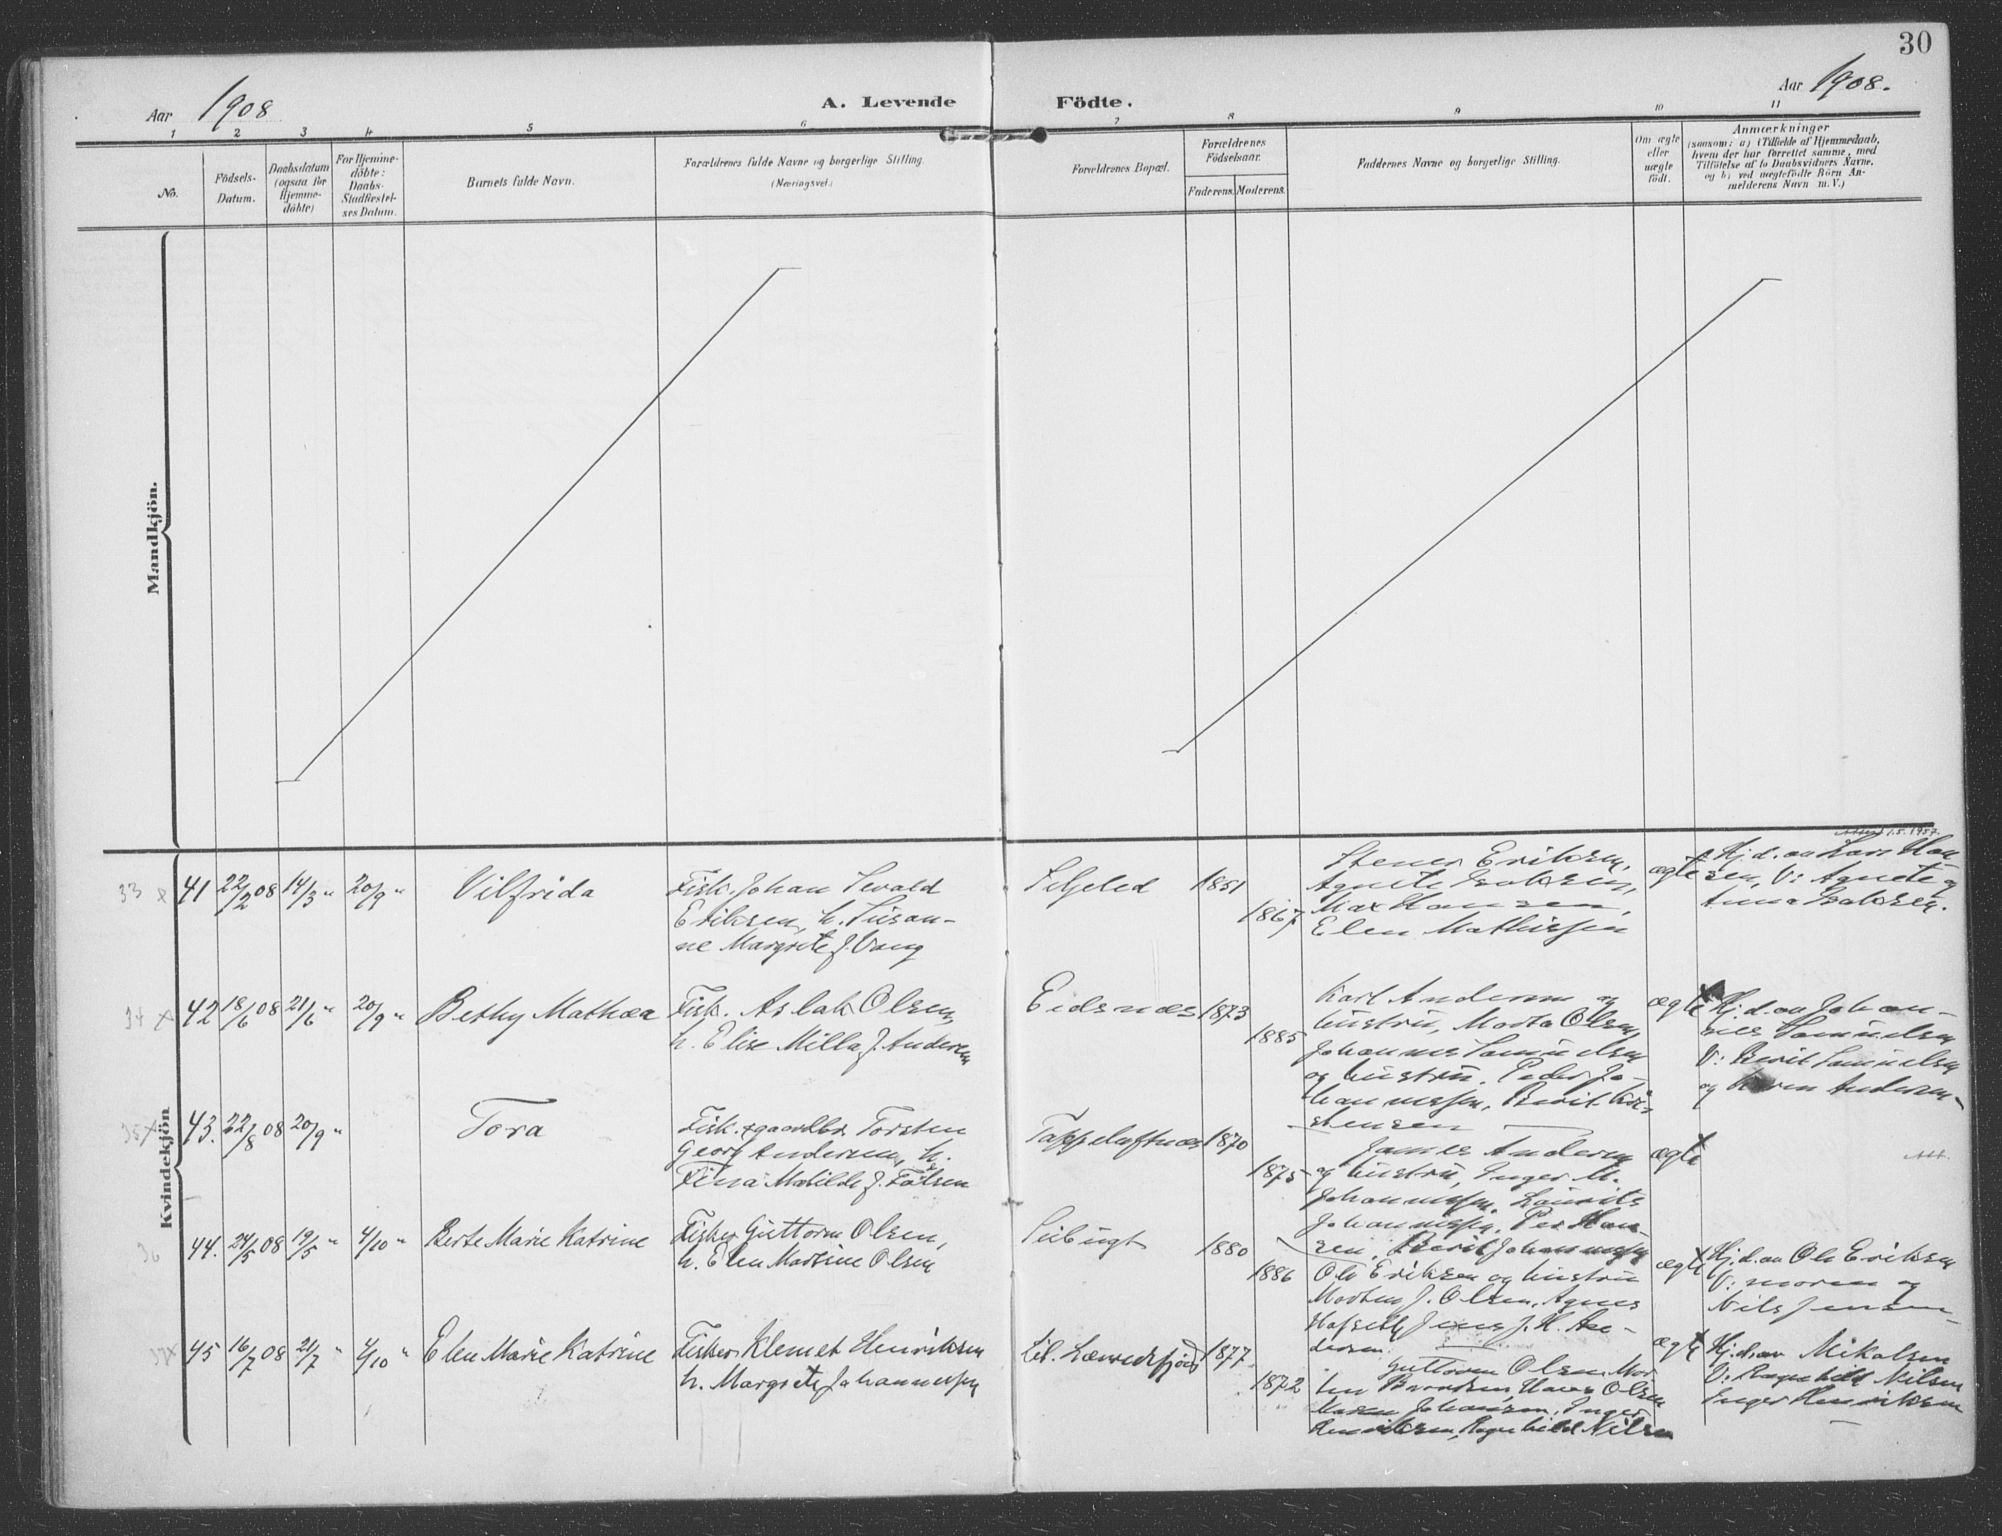 30
Aar 1908
A. Levende
Födte.
Aar 1908.
1 2 3 4 5 6 7 8 9 10 11
No.
Födsels-
Datum.
Daabsdatum
(ogsaa for
Hjemme-
döbte)
For Hjemme-
döbte:
Daabs-
Stadfæstel-
ses Datum.
Barnets fulde Navn.
Forældrenes fulde Navne og borgerlige Stilling.
(Næringsvei.)
Forældrenes Bopæl.
Forældrenes
Födselsaar.
Faderens. Moderens.
Faddernes Navne og borgerlige Stilling.
Om ægte
eller
uægte
födt.
Anmærkninger
(saasom: a) i Tilfælde af Hjemmedaab,
hvem der har forrettet samme, med
Tilföielse af to Daabsvidners Navne,
og b) ved uægtefödte Börn An-
melderens Navn m. V.)
Mandkjön.
Kvindekjön.
33 x 41 22/2 08 14/3 " 20/9 " Vilfrida
Fisk. Johan Sevald
Eriksen, h. Susan-
ne Margrete f. Vang
1851
1867
Stener Eriksen,
Agnete Isaksen,
Max Hansen,
Elen Mathissen
ægte
1.5.1957.
Hj. d. av Lars Han-
sen, V: Agnete og
Anna Isaksen.
34 x 42 18/6 08 21/6 " 20/9 " Bethy Mathea
Fisk. Aslak Olsen,
h. Elise Milla f. Andersen
Eidsnæs 1873
1885
Karl Andersen og
hustru, Marta Olsen,
Johannes Samuelsen
og hustru, Peder Jo-
hannessen, Berit Kri-
stensen
ægte
Hj. d. av Johan-
nes Samuelsen
V: Berit Samuelsen
og Karen Andersen
35 x 43. 22/8 08 20/9 " Tora
Fisk. & gaardbr. Torsten
Georg Andersen, h.
Fina Matilde f. Johnsen
Tappeluftnæs 1870
1875
James Andersen
og hustru, Inger M.
Johannessen, Laurits
Johannessen, Per Han-
sen, Berit Johannessen
ægte
Att.
36 44. 24/5 08 19/5 " 4/10 " Berte Marie Katrine
Fisker Guttorm Olsen,
h. Elen Martine Olsen
1880
1886
Ole Eriksen og hustru
Morten J. Olsen, Agnes
Jens J. H. An-
dersen
ægte
Hj. d. av Ole Eriksen
V: moren og
Nils Jensen
37 x 45 16/7 08 21/7 " 4/10 " Elen Marie Katrine
Fisker Klemet Henriksen
h. Margrete Johannessen
Lil. Lærredsfjord 1877
1872
Guttorm Olsen, Mor-
ten Berntsen, Hans Olsen
Maren Johansen, Inger
Henriksen, Ragnhild Nilsen
ægte
Hj. d. av Mikalsen
V: Ragnhild Nilsen
Inger Henriksen